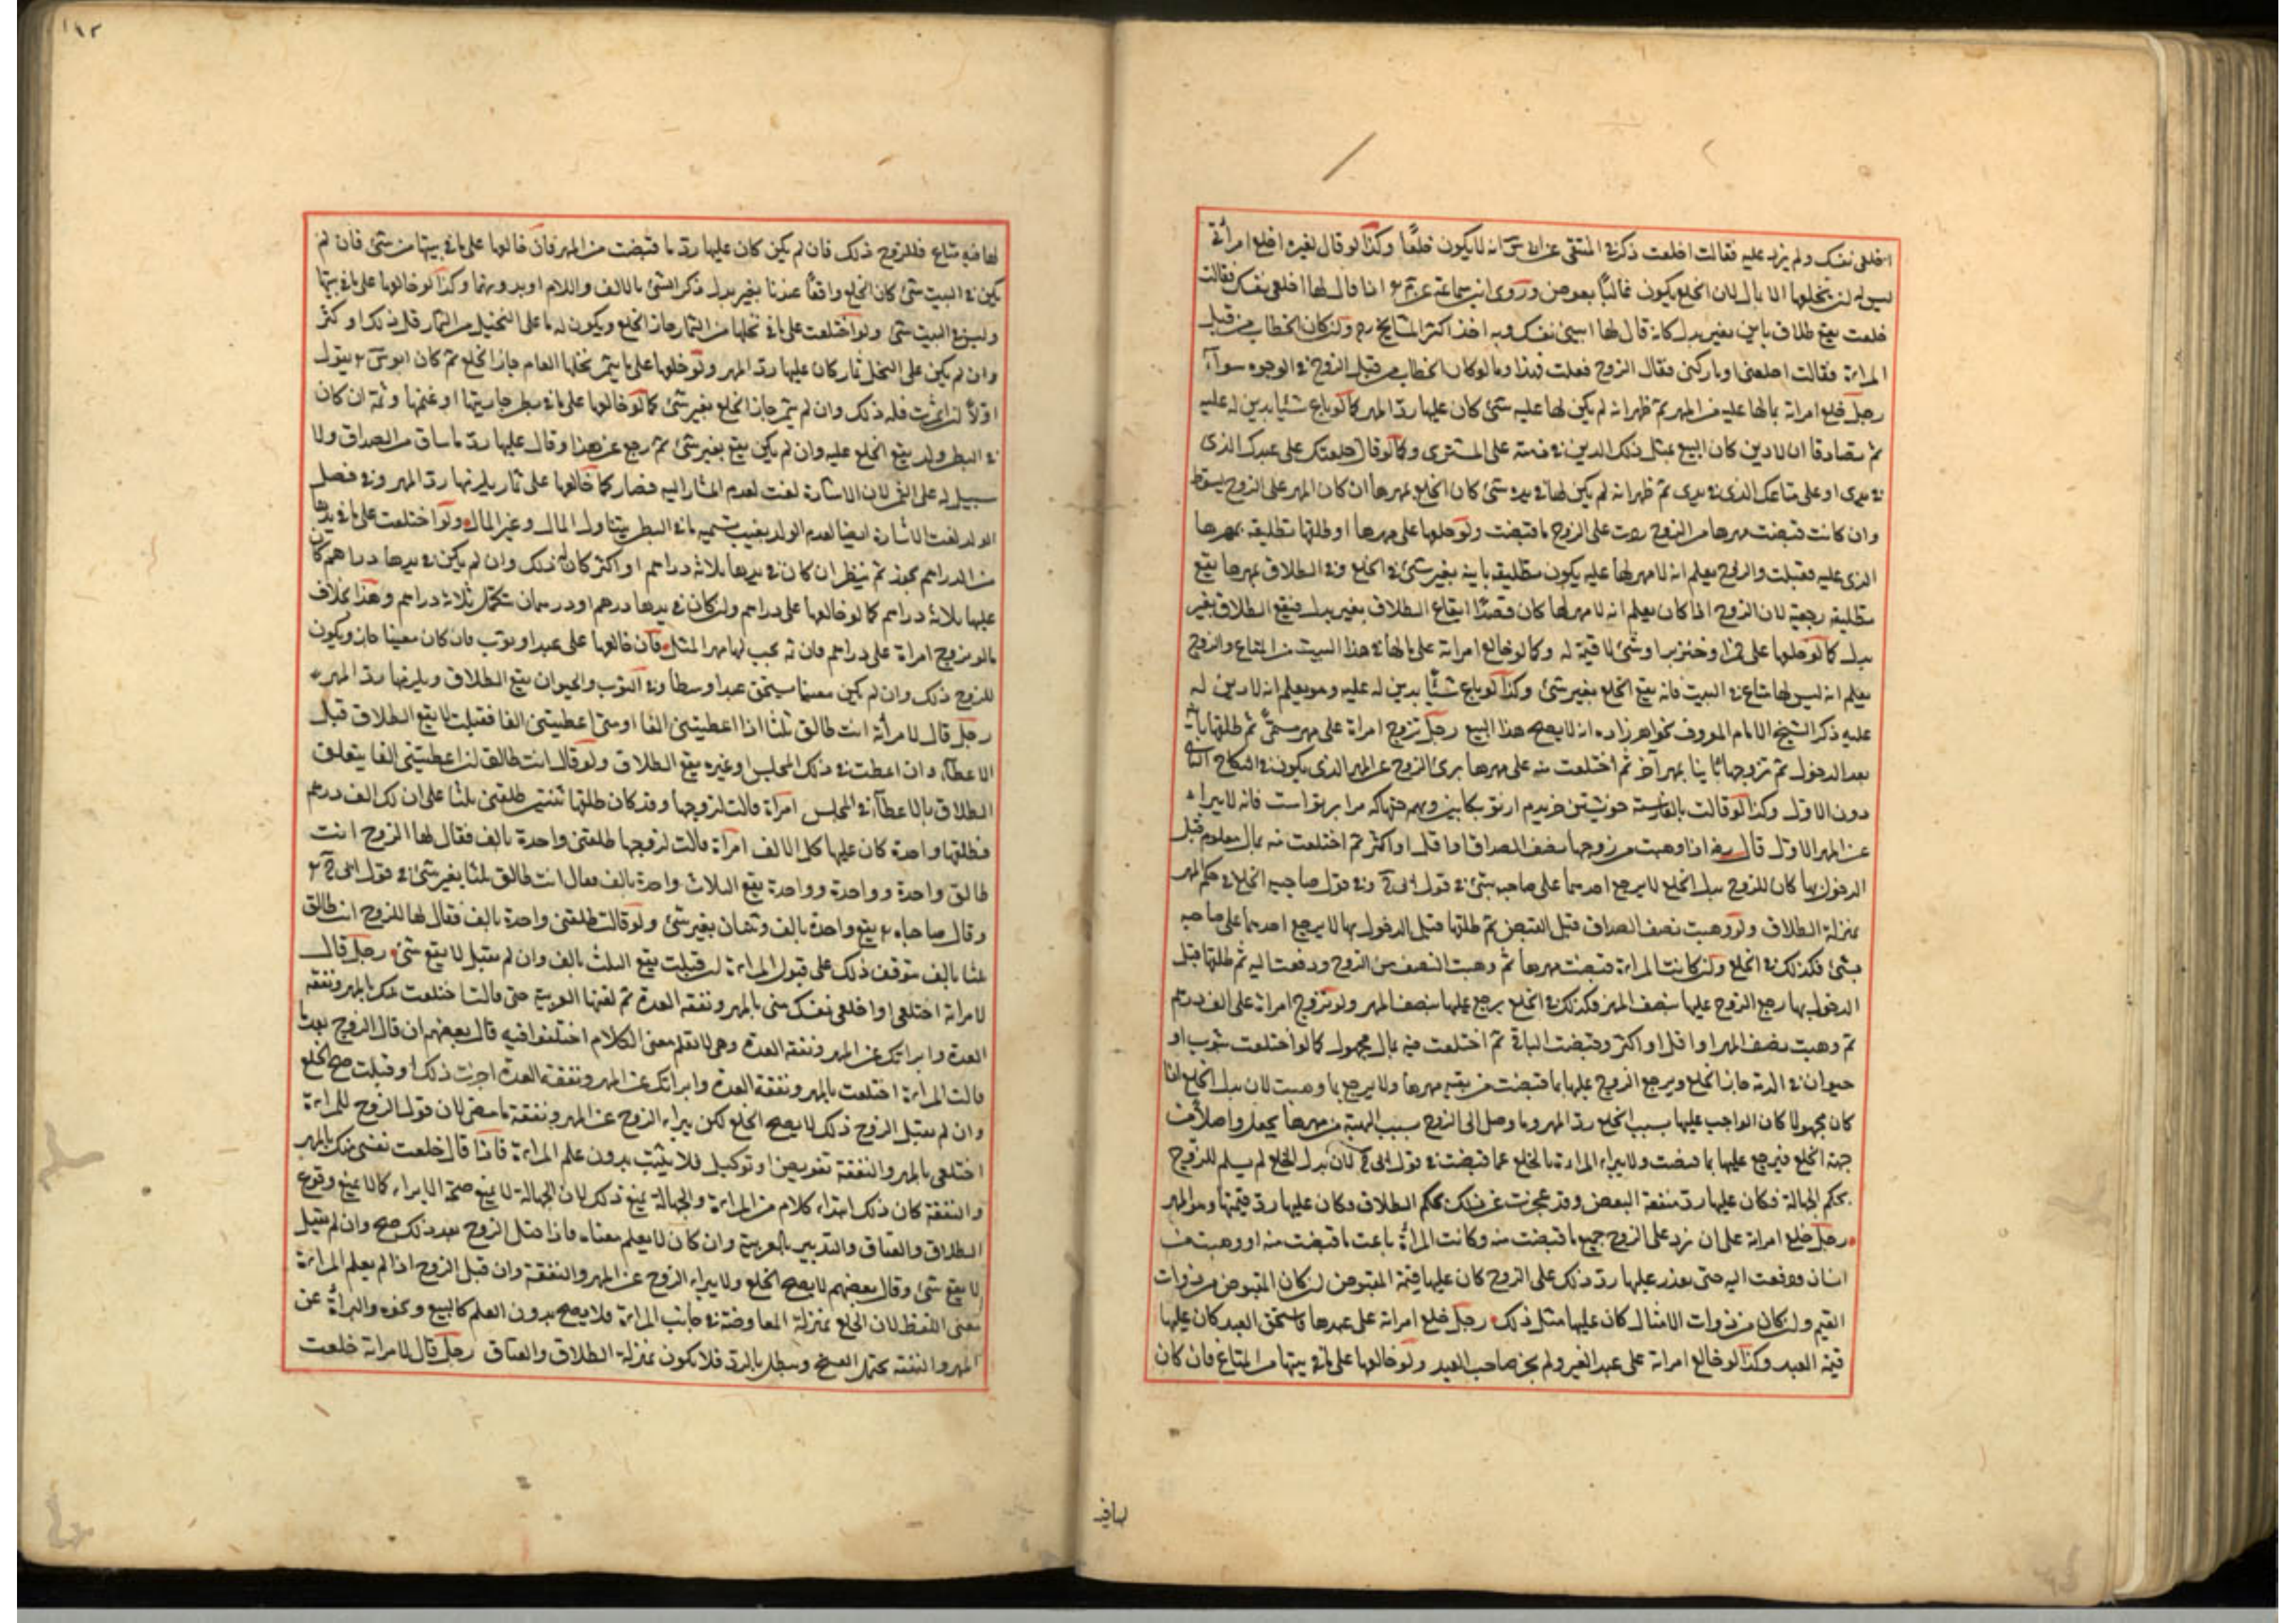 اخلعى نفسك ولم يزد عليه فقالت اختلعت ذكر فى المنتقى عن ابى س انه لا يكون خلعًا وكذا لو قال لغيره اخلع امرأتى
ليس له ان يخلعها الا بمال لان الخلع يكون غالبًا بعوض وروى ابن سماعة عن م اذا قال لها اخلعى نفسك فقالت
خلعت يقع طلاق باين بغير بدل كانه قال لها ابينى نفسك وبه اخذ اكثر المشايخ رح ولو كان الخطاب من قبل
المراءة فقالت اخلعنى او باركنى فقال الزوج فعلت فهذا وما لو كان الخطاب من قبل الزوج فى الوجوه سواء
رجل خلع امراته بما لها عليه من المهر ثم ظهر انه لم يكن لها عليه شئ كان عليها رد المهر كما لو باع شيئا بدين له عليه
ثم تصادقا ان لا دين كان البيع بمثل ذلك الدين فى ذمته على المشترى وكما لو قال خلعتك على عبدك الذى
فى يدى او على متاعك الذى فى يدى ثم ظهر انه لم يكن لها فى يده شئ كان الخلع بمهرها ان كان المهر على الزوج يسقط
وان كانت قبضت مهرها من الزوج ردت على الزوج ما قبضت ولو خلعها على مهرها او طلقها تطليقة بمهرها
الذى عليه فقبلت والزوج يعلم انه لا مهر لها عليه يكون تطليقة باينة بغير شئ فى الخلع وفى الطلاق بمهرها يقع
تطليقة رجعية لان الزوج اذا كان يعلم انه لا مهر لها كان قصدًا ايقاع الطلاق بغير بدل فيقع الطلاق بغير
بدل كما لو خلعها على خمر او خنزير او شئ لا قيمة له وكما لو خالع امراته على ما لها فى هذا البيت من المتاع والزوج
يعلم انه ليس لها متاع فى البيت فانه يقع الخلع بغير شئ وكذا لو باع شيئًا بدين له عليه وهو يعلم انه لا دين له
عليه ذكر الشيخ الامام المعروف بخواهر زاده انه لا يصح هذا البيع رجل تزوج امراة على مهر مسمًى ثم طلقها باينا
بعد الدخول ثم تزوجها ثانيا بمهر آخر ثم اختلعت منه على مهرها برئ الزوج عن المهر الذى يكون فى النكاح الثانى
دون الاول وكذا لو قالت بالفارسية خويشتن خريدم از تو بكابين وبهمه حقها كه مرا بر تو است فانه لا يبراء
عن المهر الاول قال رضه اذا وهبت من زوجها نصف الصداق او اقل او اكثر ثم اختلعت منه بمال معلوم قبل
الدخول بها كان للزوج بدل الخلع لا يرجع احدهما على صاحبه بشئ فى قول ابى ح وفى قول صاحبيه الخلع فى حكم المهر
بمنزلة الطلاق ولو وهبت نصف الصداق قبل القبض ثم طلقها قبل الدخول بها لا يرجع احدهما على صاحبه
بشئ فكذلك فى الخلع ولو كانت المراءة قبضت مهرها ثم وهبت النصف من الزوج ودفعت اليه ثم طلقها قبل
الدخول بها رجع الزوج عليها بنصف المهر فكذلك فى الخلع يرجع عليها بنصف المهر ولو تزوج امراة على الف درهم
ثم وهبت نصف المهر او اقل او اكثر وقبضت الباقى ثم اختلعت منه بمال مجهول كما لو اختلعت بثوب او
حيوان فى الذمة جاز الخلع ويرجع الزوج عليها بما قبضت من بقية مهرها ولا يرجع بما وهبت لان بدل الخلع لما
كان مجهولا كان الواجب عليها بسبب الخلع رد المهر وما وصل الى الزوج بسبب الهبة من مهرها يجعل واصلًا من
جهة الخلع فيرجع عليها بما قبضت ولا يبراء المراءة بالخلع عما قبضت فى قول ابى ح لان بدل الخلع لم يسلم للزوج
بحكم الجهالة فكان عليها رد منفعة البعض وقد عجزت عن ذلك بحكم الطلاق فكان عليها رد قيمتها وهو المهر
رجل خلع امراته على ان ترد على الزوج جميع ما قبضت منه وكانت المراة باعت ما قبضت منه او وهبت من
انسان ودفعت اليه حتى تعذر عليها رد ذلك على الزوج كان عليها قيمة المقبوض ان كان المقبوض من ذوات
القيم وان كان من ذوات الامثال كان عليها مثل ذلك رجل خلع امراته على عبدها فاستحق العبد كان عليها
قيمة العبد وكذا لو خالع امراته على عبد الغير ولم يجز صاحب العبد ولو خالعها على ما فى بيتها من المتاع فان كان
لها فيه
١٩٢
لها فيه متاع فللزوج ذلك فان لم يكن كان عليها رد ما قبضت من المهر فان خالعها على ما فى بيتها من شئ فان لم
يكن فى البيت شئ كان الخلع واقعًا عندنا بغير بدل ذكر الشئ بالالف واللام او بدونهما وكذا لو خالعها على ما فى بيتها
وليس فى البيت شئ ولو اختلعت على ما فى نخلها من الثمار جاز الخلع ويكون له ما على النخيل من الثمار قل ذلك او كثر
وان لم يكن على النخل ثمار كان عليها رد المهر ولو خلعها على ما يثمر نخلها العام جاز الخلع ثم كان ابو س يقول
اولًا ان اثمرت فله ذلك وان لم يثمر جاز الخلع بغير شئ كما لو خالعها على ما فى بطن جاريتها او غنمها وثمة ان كان
فى البطن ولد يقع الخلع عليه وان لم يكن يقع بغير شئ ثم رجع عن هذا وقال عليها رد ما ساق من الصداق ولا
سبيل له على الثمر لان الاشارة لغت لعدم المشار اليه فصار كما لو خالعها على ثمار يلزمها رد المهر وفى فصل
الولد لغت الاشارة ايضا لعدم الولد بغيب تسميه ما فى البطن يتناول المال وغير المال ولو اختلعت على ما فى يدها
من الدراهم يجوز ثم ينظر ان كان فى يدها ثلاثة دراهم او اكثر كان له ذلك وان لم يكن فى يدها دراهم كان
عليها ثلاثة دراهم كما لو خالعها على دراهم وان كان فى يدها درهم او درهمان تكمل ثلاثة دراهم وهذا بخلاف
ما لو تزوج امراة على دراهم فان ثمه يجب لها مهر المثل فان خالعها على عبد او ثوب فان كان معينا جاز ويكون
للزوج ذلك وان لم يكن معينا يستحق عبدا وسطا وفى الثوب والحيوان يقع الطلاق ويلزمها رد المهر
رجل قال لامرأته انت طالق ثلثا اذا اعطيتنى الفا او متى اعطيتنى الفا فقبلت لا يقع الطلاق قبل
الاعطاء وان اعطت فى ذلك المجلس او غيره يقع الطلاق ولو قال انت طالق ان اعطيتنى الفا يتعلق
الطلاق بالاعطاء فى المجلس امرأة قالت لزوجها وقد كان طلقها ثنتين طلقنى ثلثا على ان لك الف درهم
فطلقها واحدة كان عليها كل الالف امرأة قالت لزوجها طلقنى واحدة بالف فقال لها الزوج انت
طالق واحدة وواحدة وواحدة يقع الثلاث واحدة بالف فقال انت طالق ثلثا بغير شئ فى قول ابى ح
وقال صاحباه يقع واحدة بالف وثنتان بغير شئ ولو قالت طلقنى واحدة بالف فقال لها الزوج انت طالق
ثلثا بالف يتوقف ذلك على قبول المراءة ان قبلت يقع الثلث بالف وان لم تقبل لا يقع شئ رجل قال
لامراته اختلعى او اخلعى نفسك منى بالمهر ونفقة العدة ثم لقنها العربية حتى قالت اختلعت منك بالمهر ونفقة
العدة وابراتك عن المهر ونفقة العدة وهى لا تعلم معنى الكلام اختلفوا فيه قال بعضهم ان قال الزوج بعد ما
قالت المراءة اختلعت بالمهر ونفقة العدة وابراتك عن المهر ونفقة العدة اجزت ذلك او قبلت صح الخلع
وان لم يقبل الزوج ذلك لا يصح الخلع لكن يبراء الزوج عن المهر ونفقة ما مضى لان قول الزوج للمراءة
اختلعى بالمهر والنفقة تفويض او توكيل فلا يثبت بدون علم المراءة فاذا قال خلعت نفسى منك بالمهر
والنفقة كان ذلك ابتداء كلام من المراءة والجهالة تمنع ذلك لان الجهالة لا تمنع صحة الابراء كما لا تمنع وقوع
الطلاق والعتاق والتدبير بالعربية وان كان لا يعلم معناه فاذا قبل الزوج بعد ذلك صح وان لم يقبل
لا يقع شئ وقال بعضهم لا يصح الخلع ولا يبراء الزوج عن المهر والنفقة وان قبل الزوج اذا لم يعلم المراءة
معنى اللفظ لان الخلع بمنزلة المعاوضة فى جانب المراءة فلا يصح بدون العلم كالبيع ونحوه والبرأة عن
المهر والنفقة يحتمل الفسخ ويبطل بالرد فلا يكون بمنزلة الطلاق والعتاق رجل قال لامراته خلعت